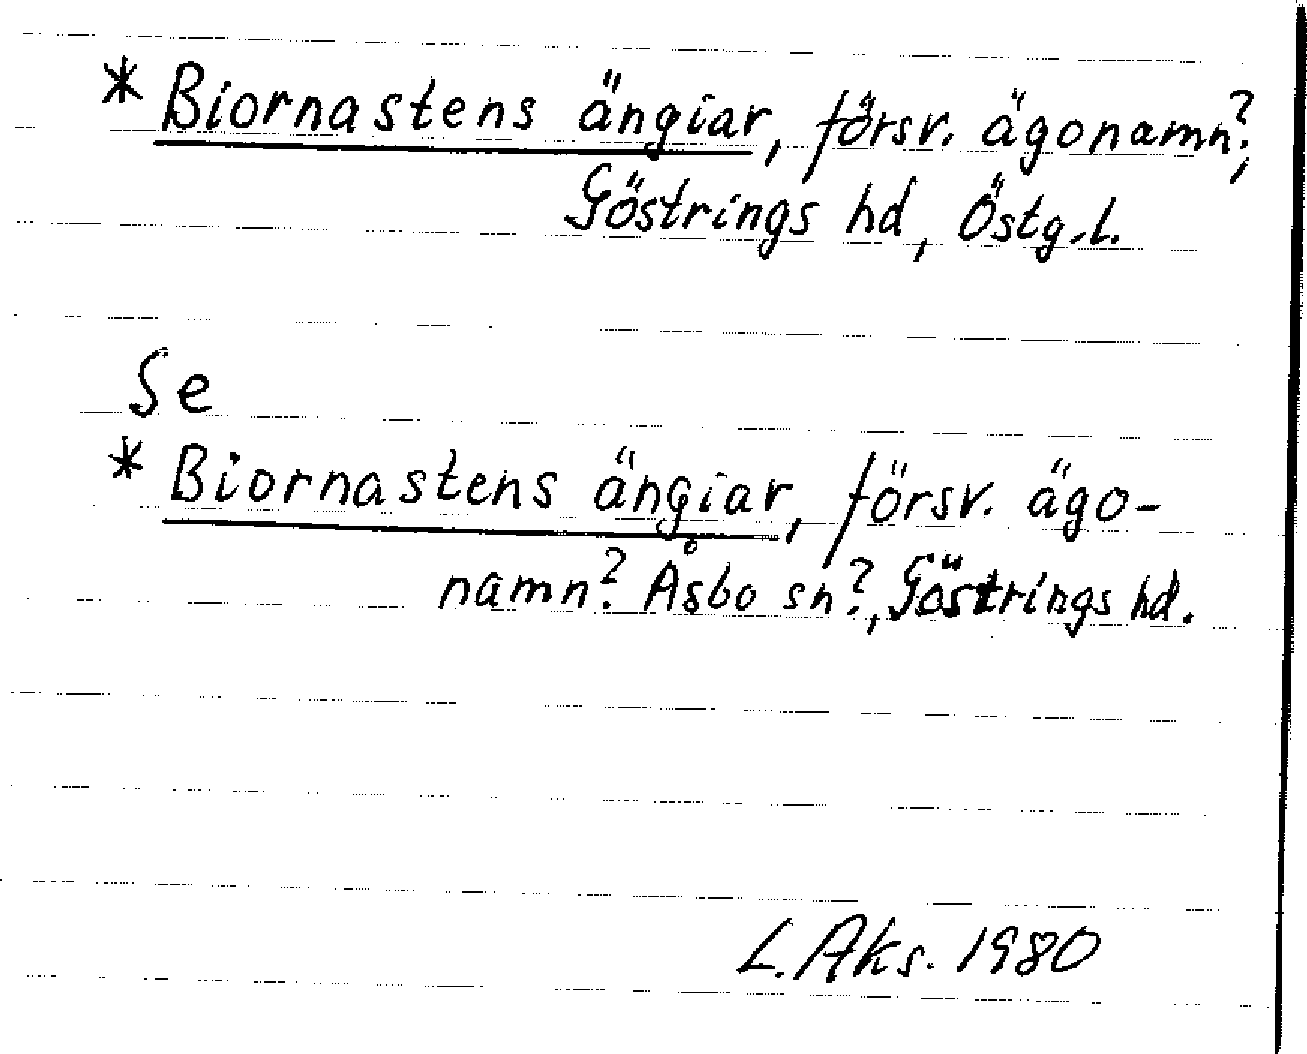 * Biornastens ängiar, försv. ägonamn?,
Göstrings hd, Östg.l.
Se
* Biornastens ängiar, försv. ägo-
namn? Åsbo sn?, Göstrings hd.
L. Aks. 1980